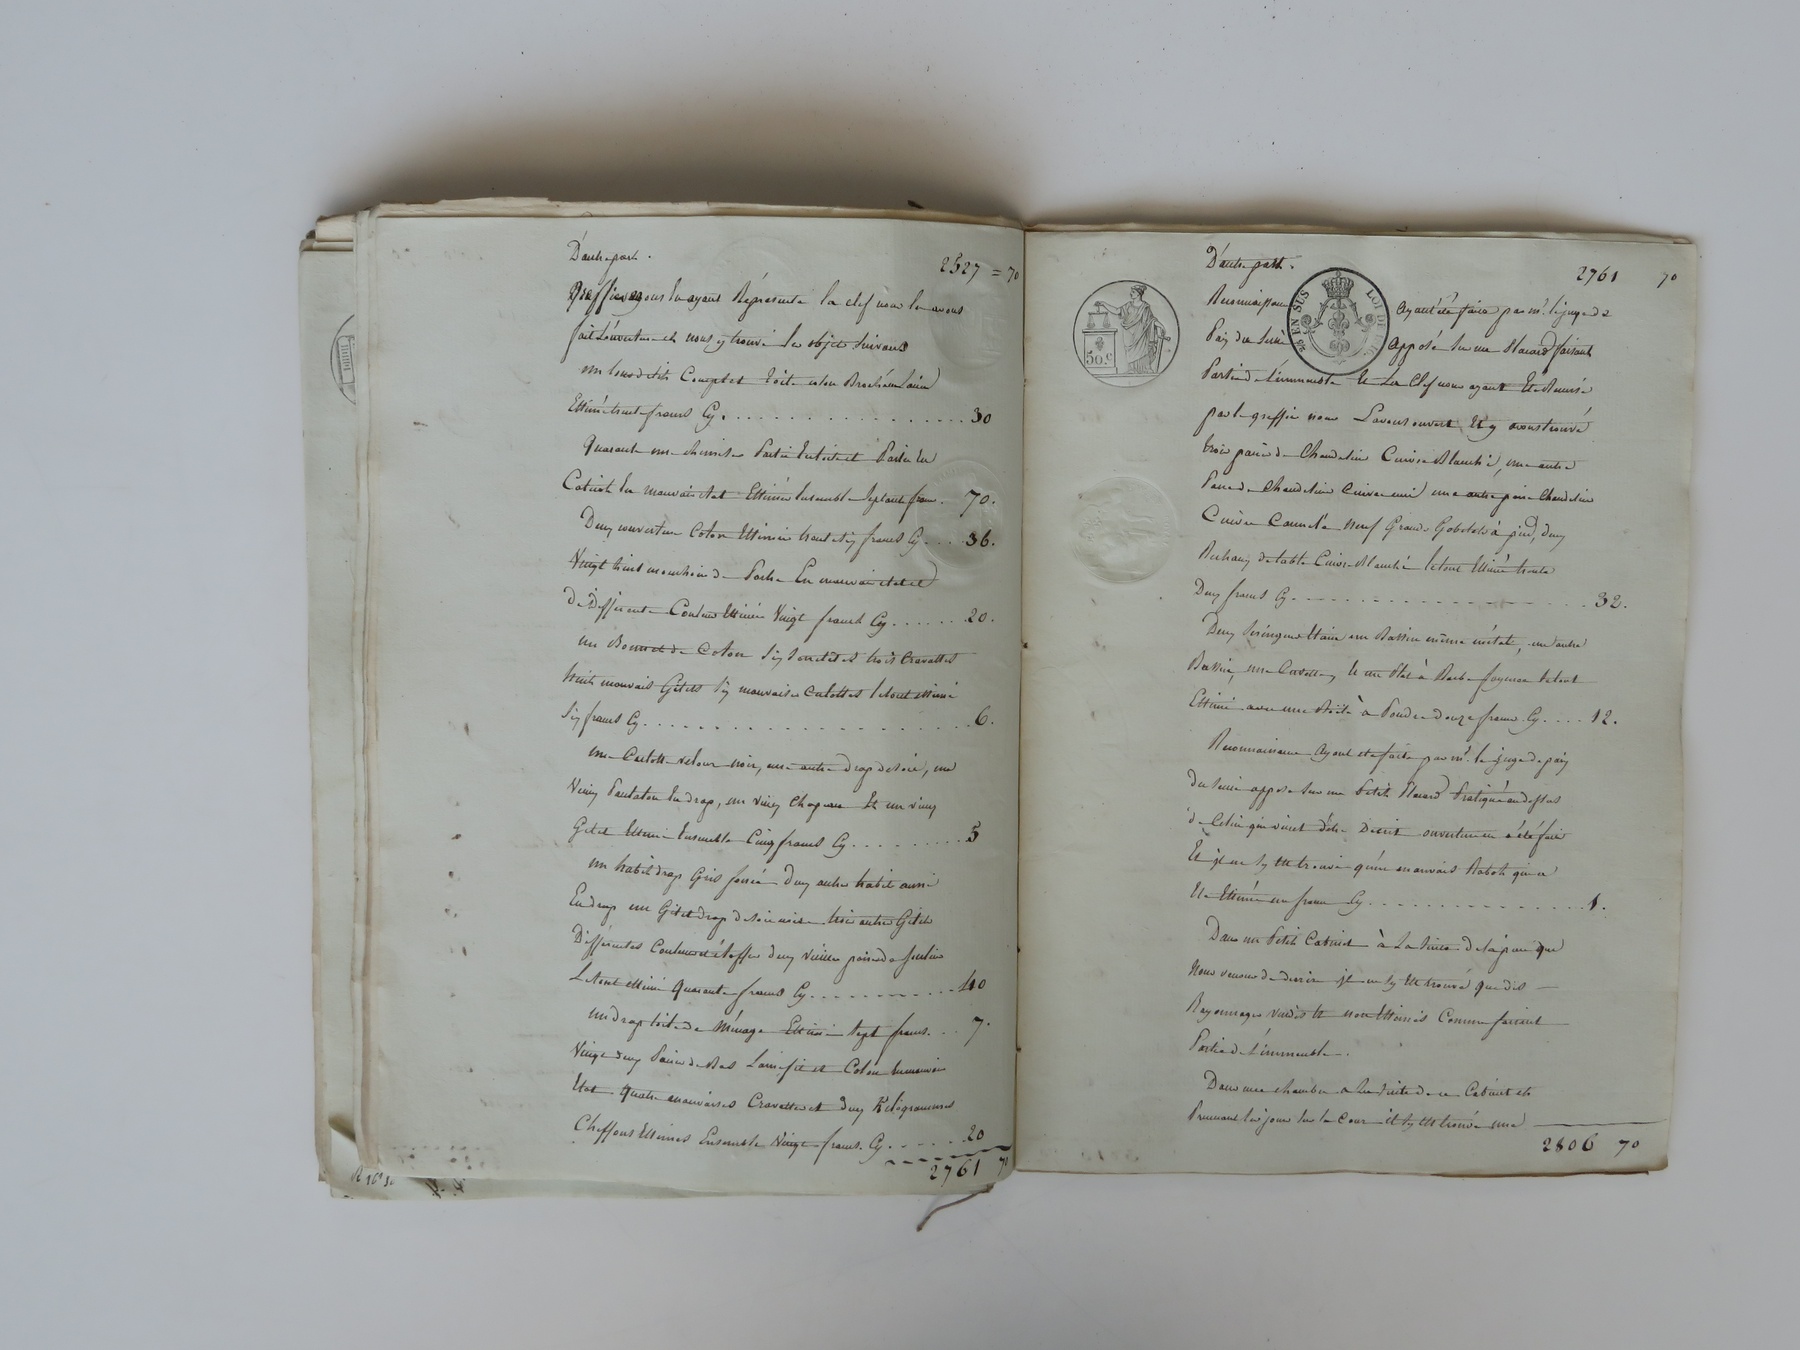 D'autre part. 2527 = 70
Greffier nous en ayant Représenté la clef nous l'avons
fait L'ouverture et nous y trouvé les objets Suivants
un tour de lit Complet toile coton
Estimé trente francs Cy. 30
Quarante une chemises Partie en toile et Partie en
Coton et en mauvais état Estimées Ensemble Septante francs. 70.
Deux couverture Coton Estimées trente six francs Cy. 36.
Vingt huit mouchoirs de Poche En mauvais état et
de différente Couleur Estimés Vingt francs Cy. 20.
un Bonnet de Coton Six trois Cravattes
huit mauvais Gilets Six mauvaises culottes le tout estimé
Six francs Cy. 6.
une Culotte velour noir, une autre drap de soie, un
Vieux Pantalon en drap, un vieux chapeau Et un vieux
Gilet Estimé Ensemble Cinq francs Cy. 5
un habit drap Gris foncé Deux autre habit aussi
En drap un Gilet drap de soie noire trois autre Gilets
Différentes Couleurs et étoffes deux vieilles paires de souliers
Le tout estimé Quarante francs Cy. 40
un drap toile de Ménage Estimé Sept francs. 7.
Vingt deux Paires de Bas Laine fil et Coton En mauvais
Etat Quatre mauvaises Cravattes et deux Kilogrammes
Cheffons Estimés Ensemble Vingt francs. Cy. 20
2761 70
D'autre part. 2761 70
50 c
EN SUS LOI DE
Reconnaissance ayant été faite par mr. le juge de
Paix du Scellé Apposé Sur un Placard faisant
Partie de L'immeuble Et La Clef nous ayant Eté Remise
par le greffier nous L'avons ouvert Et y avons trouvé
trois paires de Chandelier Cuivre Blanchi, une autre
Paire de Chandelier Cuivre uni une autre paire Chandelier
Cuivre Cannelé neuf Grands Gobelets à pied, deux
Rechaux de table Cuivre Blanchi le tout Estimé trente
Deux francs Cy. 32.
Deux Seringues Etain un Bassin même métal, un autre
Bassin, une Cuvette, Et un Plat à Barbe fayence le tout
Estimé avec une Boîte à Poudre douze francs Cy. 12.
Reconnaissance Ayant été faite par mr. le juge de paix
du Scellé apposé Sur un Petit Placard Pratiqué au dessus
de Celui qui vient d'être Décrit ouverture en a été faite
Et il ne s'y Est trouvé qu'un mauvais Rabot qui a
Eté Estimé un franc Cy. 1.
Dans un Petit Cabinet à La Suite de la pièce que
Nous venons de décrire il ne s'y Est trouvé que des
Rayonnages vuides Et non Estimés Comme faisant
Partie de L'immeuble.
Dans une chambre à la Suite de ce Cabinet et
Prennant les jours Sur la Cour il s'y Est trouvé une
2806 70